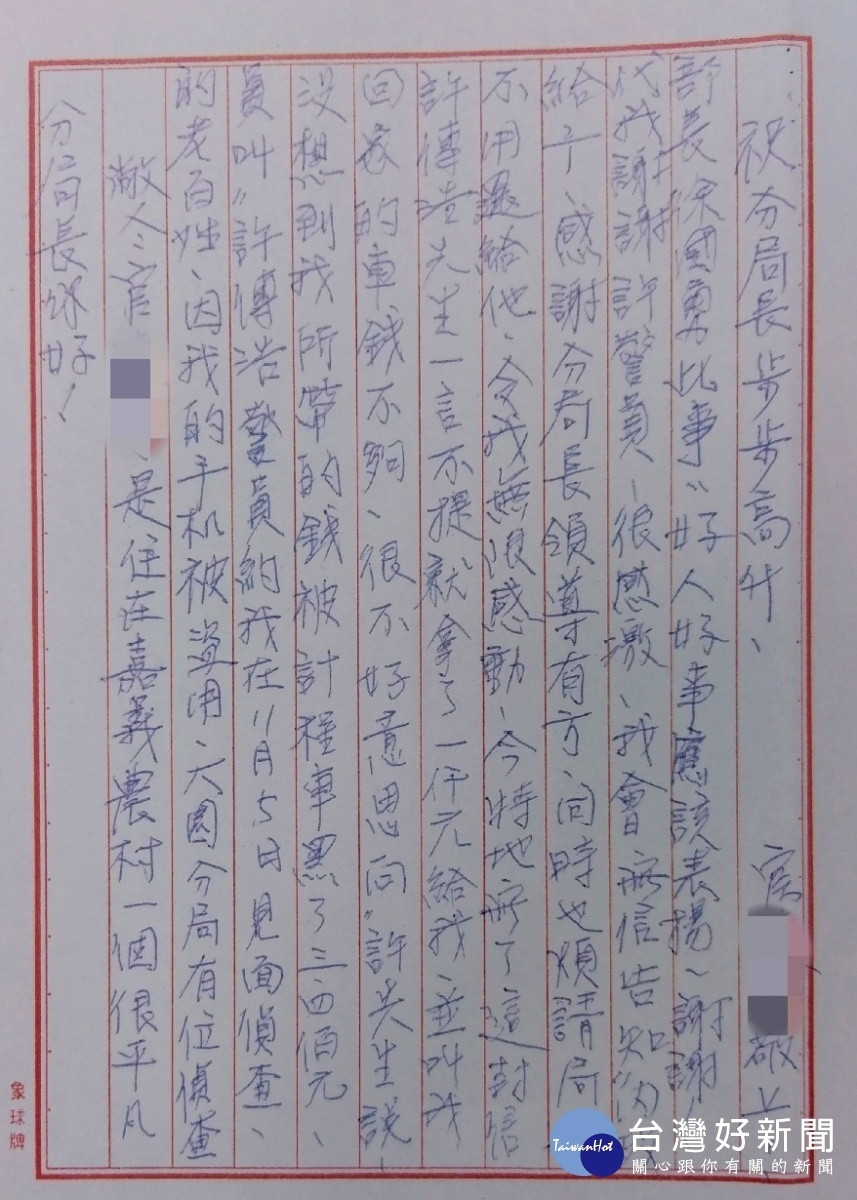 分局長你好！
敝人:官、是住在嘉義農村一個很平凡
的老百姓、因我的手机被盗用、大園分局有位偵查
員叫"許傅浩警員約我在11月5日見面偵查、
沒想到我所帶的錢被計程車黑了三四佰元、
回家的車錢不夠、很不好意思向"許先生說、
許傅浩先生一言不提就拿了一仟元給我、並叫我
不用還給他、令我無限感動、今特地寫了這封信
給予、感謝分局長領導有方、同時也煩請局
代我謝謝許警員、很感激、我會寫信告知"內政
部長徐國勇此事"好人好事應該表揚、謝謝!
祝分局長步步高升、
官 敬上
象球牌
TaiwanHot
台灣好新聞
關心跟你有關的新聞